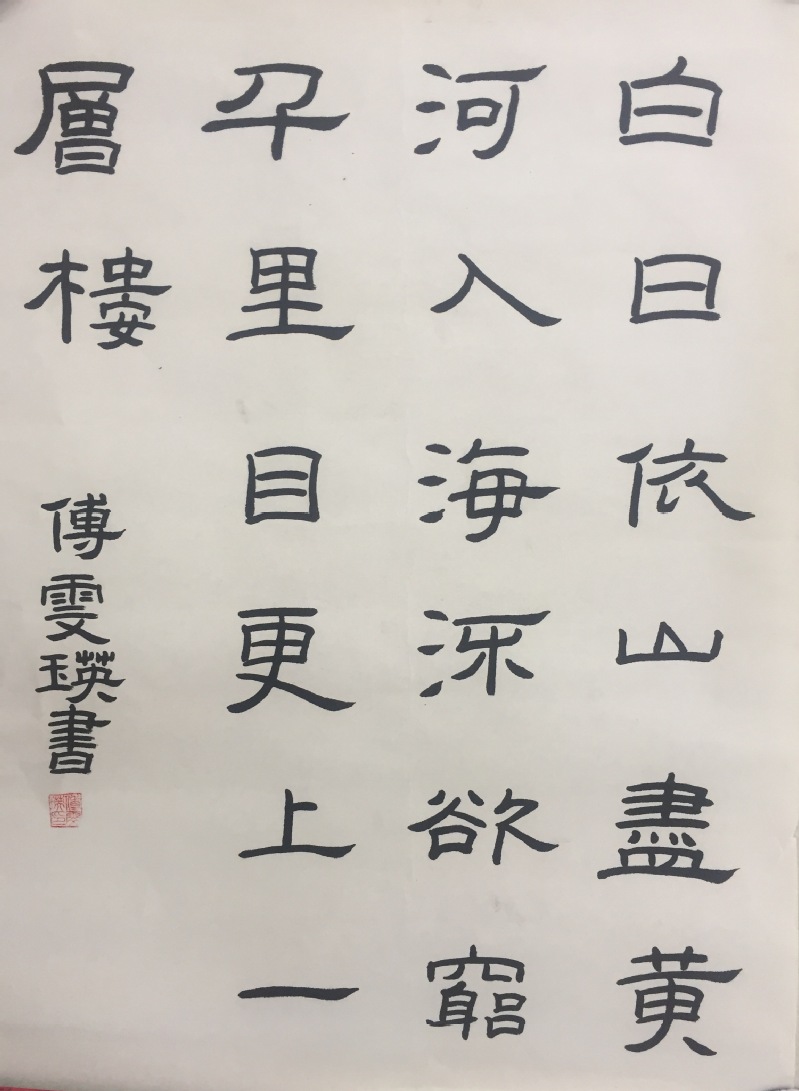 白日依山盡黄
河入海流欲窮
千里目更上一
層樓
傅雯瑛書